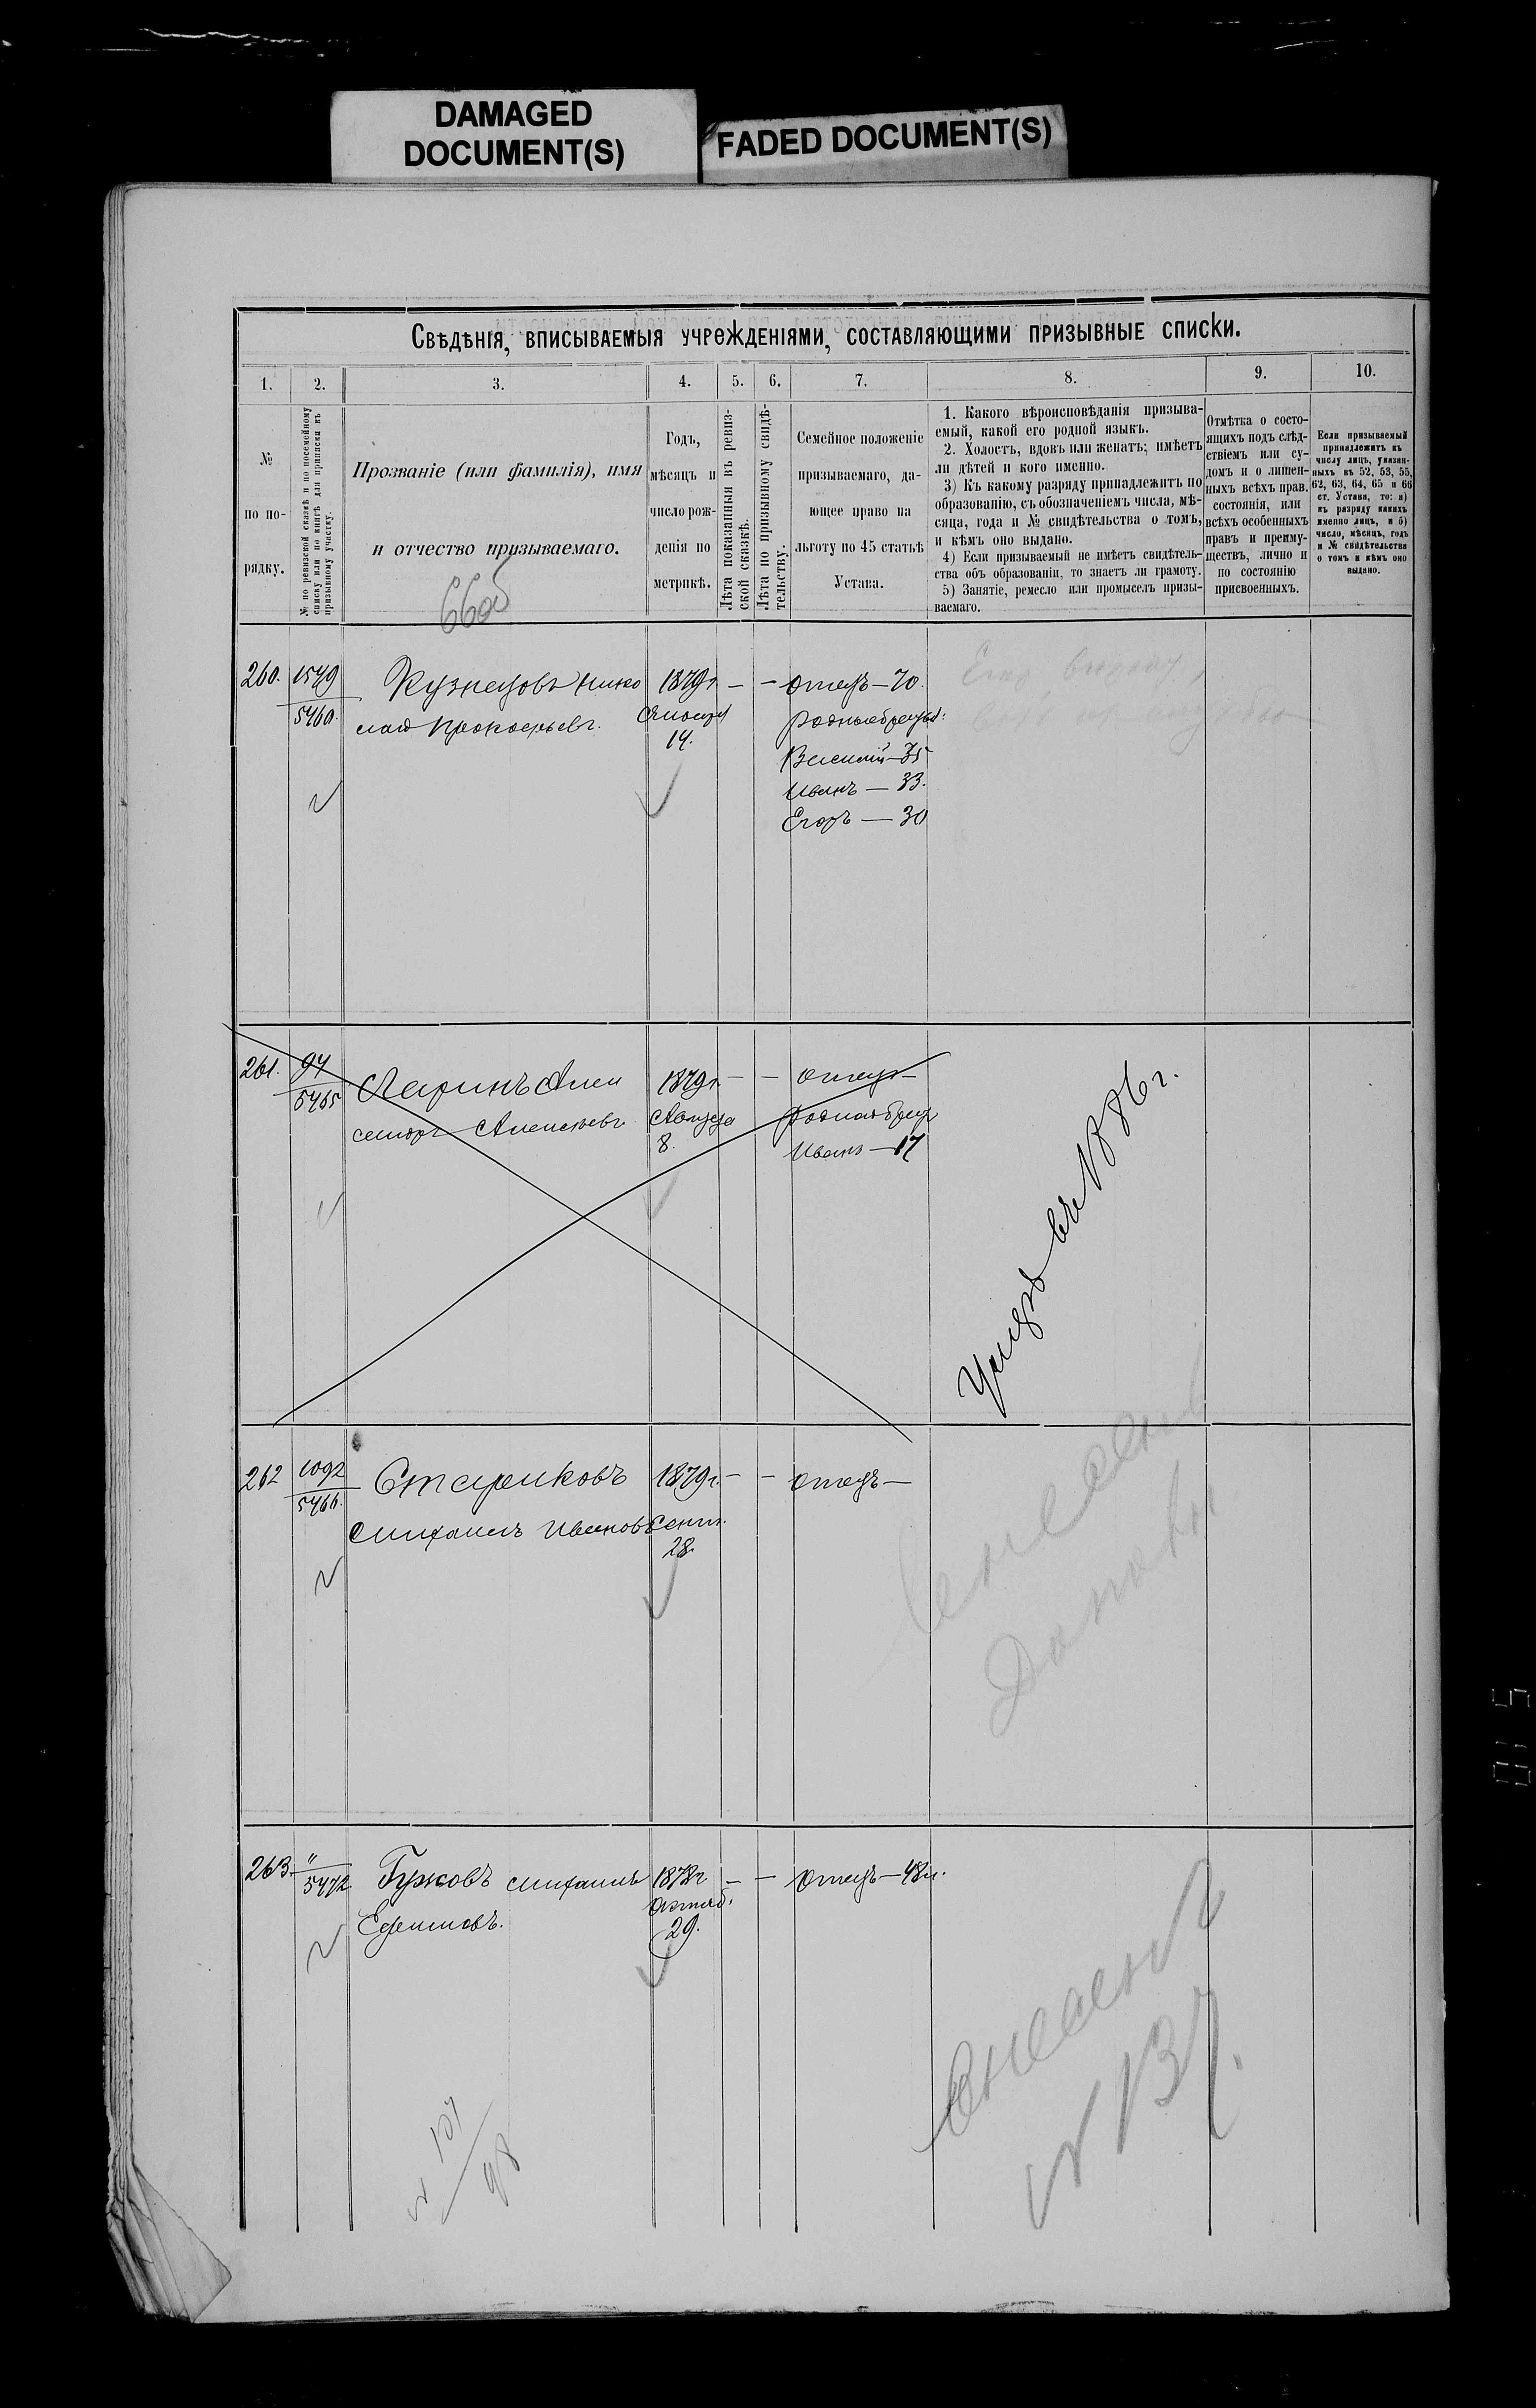 DAMAGED
DOCUMENT(S)
FADED DOCUMENT(S)
Свѣдѣнія, вписываемыя учрежденіями, составляющими призывные списки.
1. 2. 3. 4. 5. 6. 7. 8. 9. 10.
№
по по-
рядку.
№ по ревизской сказкѣ и по посемейному
списку или по книгѣ для приписки къ
призывному участку.
Прозваніе (или фамилія), имя
и отчество призываемаго.
Годъ,
мѣсяцъ и
число рож-
денія по
метрикѣ.
Лѣта показанныя въ ревиз-
ской сказкѣ.
Лѣта по призывному свидѣ-
тельству.
Семейное положеніе
призываемаго, да-
ющее право на
льготу по 45 статьѣ
Устава.
1. Какого вѣроисповѣданія призыва-
емый, какой его родной языкъ.
2. Холостъ, вдовъ или женатъ; имѣетъ
ли дѣтей и кого именно.
3) Къ какому разряду принадлежитъ по
образованію, съ обозначеніемъ числа, мѣ-
сяца, года и № свидѣтельства о томъ,
и кѣмъ оно выдано.
4) Если призываемый не имѣетъ свидѣтель-
ства объ образованіи, то знаетъ ли грамоту.
5) Занятіе, ремесло или промыселъ призы-
ваемаго.
Отмѣтка о состо-
ящихъ подъ слѣд-
ствіемъ или су-
домъ и о лишен-
ныхъ всѣхъ прав.
состоянія, или
всѣхъ особенныхъ
правъ и преиму-
ществъ, лично и
по состоянію
присвоенныхъ.
Если призываемый
принадлежитъ къ
числу лицъ, указан-
ныхъ въ 52, 53, 55,
62, 63, 64, 65 и 66
ст. Устава, то: а)
къ разряду какихъ
именно лицъ, и б)
число, мѣсяцъ, годъ
и № свидѣтельства
о томъ и кѣмъ оно
выдано.
260.
1549
5460.
Кузнецовъ Нико
лай Прокофьевъ.
1879г.
14.
— —
Отецъ — 70.
родные братья:
Василій — 35
Иванъ — 33.
Егоръ — 30
261.
94
5465
Ларинъ Алек
сѣевъ
1879г.
Августа
8.
— —
Отецъ —
родной братъ
Иванъ — 17
Умеръ въ 1886 г.
262
1092
5466.
Стариковъ
Михаилъ Ивановъ
1879г.
Сент.
28.
— —
Отецъ —
263.
"
5472
Гужовъ Михаилъ
Ефимовъ.
1878г
Октяб.
29.
— —
Отецъ — 48л.